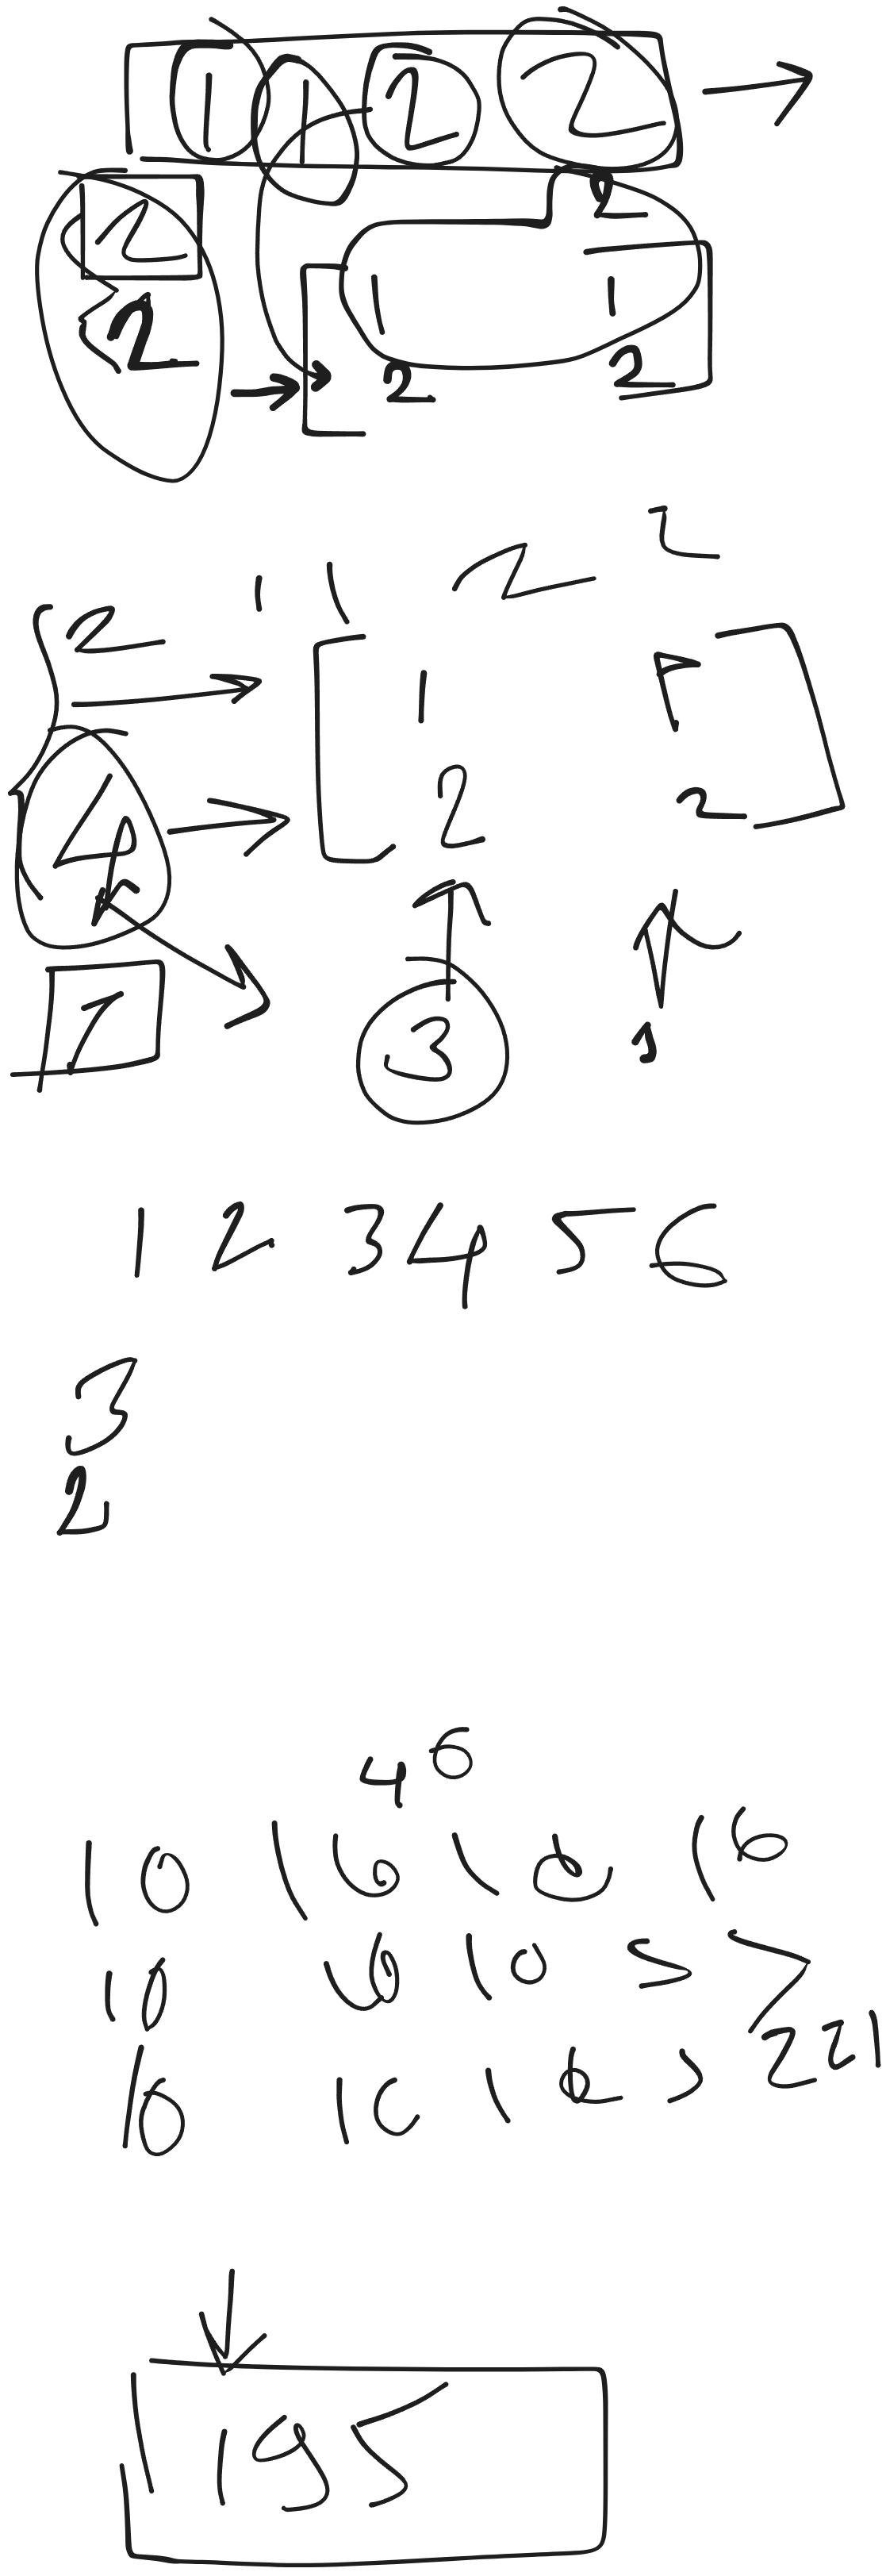 1 1 2 2
2
2
1 1
2 2
2
1 1 2 2
2
1
4 2 2
1
3 1
1 2 3 4 5 6
3
2
4 6
10 16 10 16
10 10 10 5 7
10 10 10 5 221
195